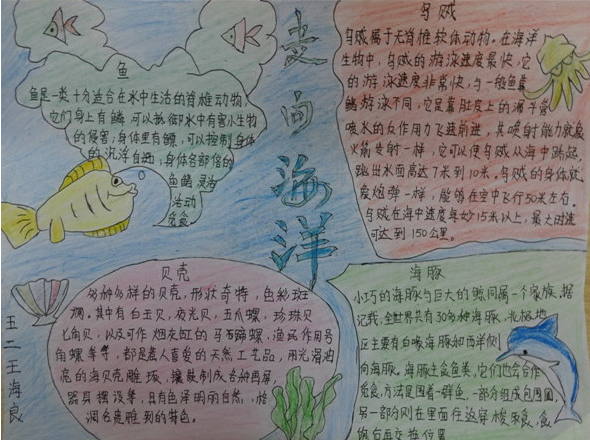 走向海洋
鱼
鱼是一类十分适合在水中生活的脊椎动物,
它们身上有鳞,可以抵御水中有害小生物
的侵害;身体里有鳔,可以控制身体
的沉浮自如;身体各部位的
鱼鳍灵活
活动
乌贼
乌贼属于无脊椎软体动物。在海洋
生物中,乌贼的游泳速度最快,它
的游泳速度非常快,与一般鱼靠
鳍游泳不同,它是靠肚皮上的漏斗管
喷水的反作用力飞速前进,其喷射能力就像
火箭发射一样,它可以使乌贼从海中跃起,
跳出水面高达7米到10米。乌贼的身体就
像炮弹一样,能够在空中飞行50米左右。
乌贼在海中速度每秒15米以上,最大时速
可达到150公里。
贝壳
多种多样的贝壳,形状奇特,色彩斑
斓。其中有白玉贝,夜光贝,五爪螺,珍珠贝
七角贝,以及可作烟灰缸的马蹄蹄螺,渔民作用号
角螺等等,都是惹人喜爱的天然工艺品,用光滑油
亮的海贝壳雕琢,镶嵌制成各种画屏,
器具摆设等,具有色泽明丽自然,格
调名贵雅致的特色。
海豚
小巧的海豚与巨大的鲸同属一个家族。据
记载,全世界共有30多种海豚,北极地
区主要有白喙海豚和西洋侧
向海豚。海豚主食鱼类,它们也会合作
觅食,方法是围着一群鱼,一部分组成包围圈,
另一部分则在里面往返穿梭
后再交换位置
五二王海良